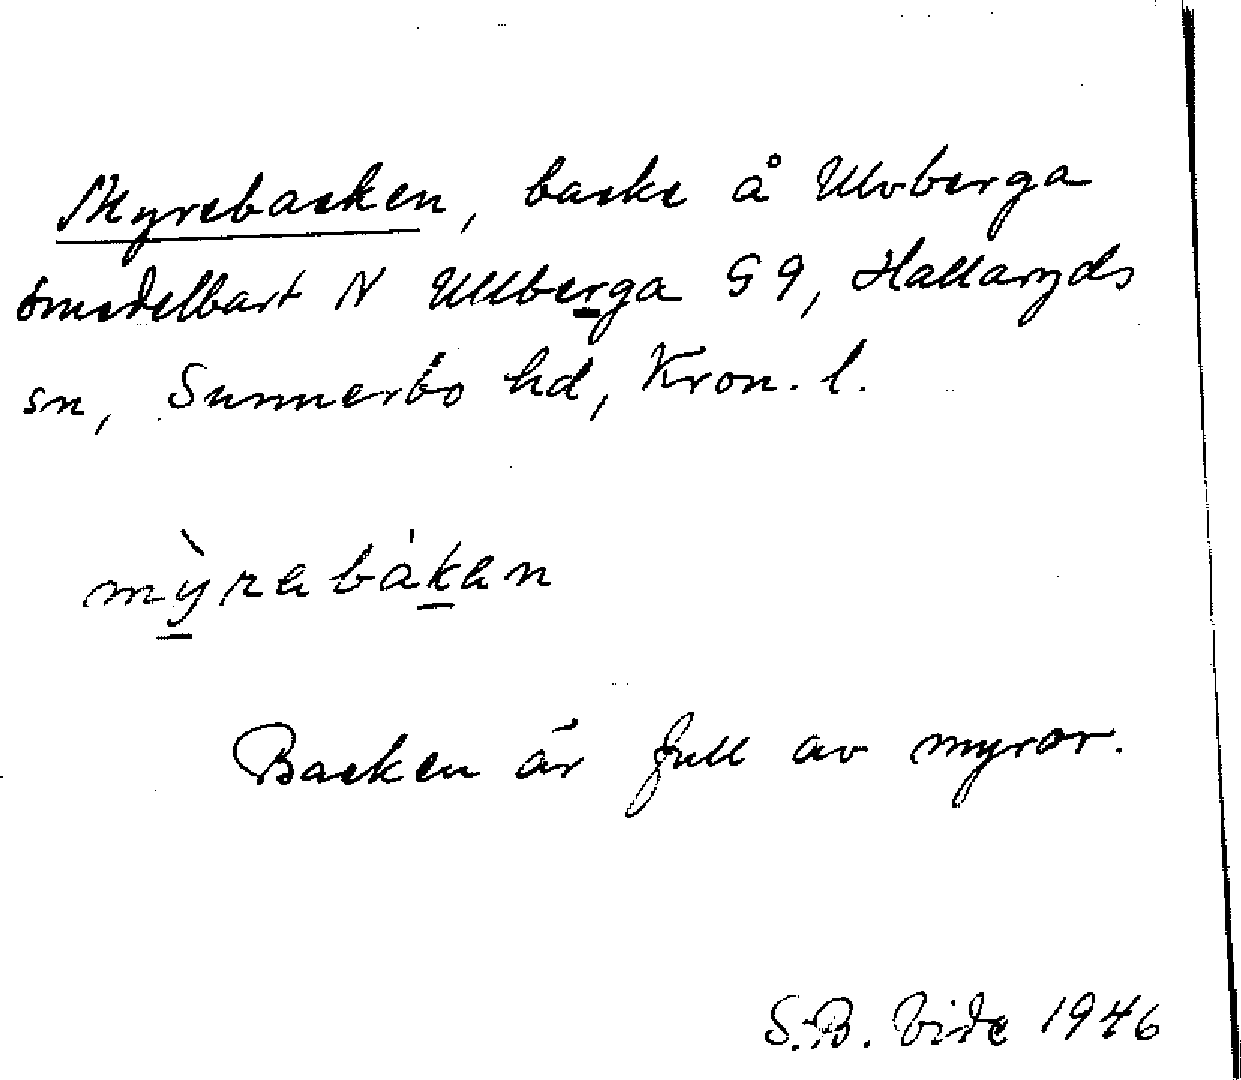 Myrebacken, backe å Ulvberga
omedelbart N Ulvberga G 9, Hallaryds
sn, Sunnerbo hd, Kron. l.
mỳrabákan
Backen är full av myror.
S.B. Vide 1946